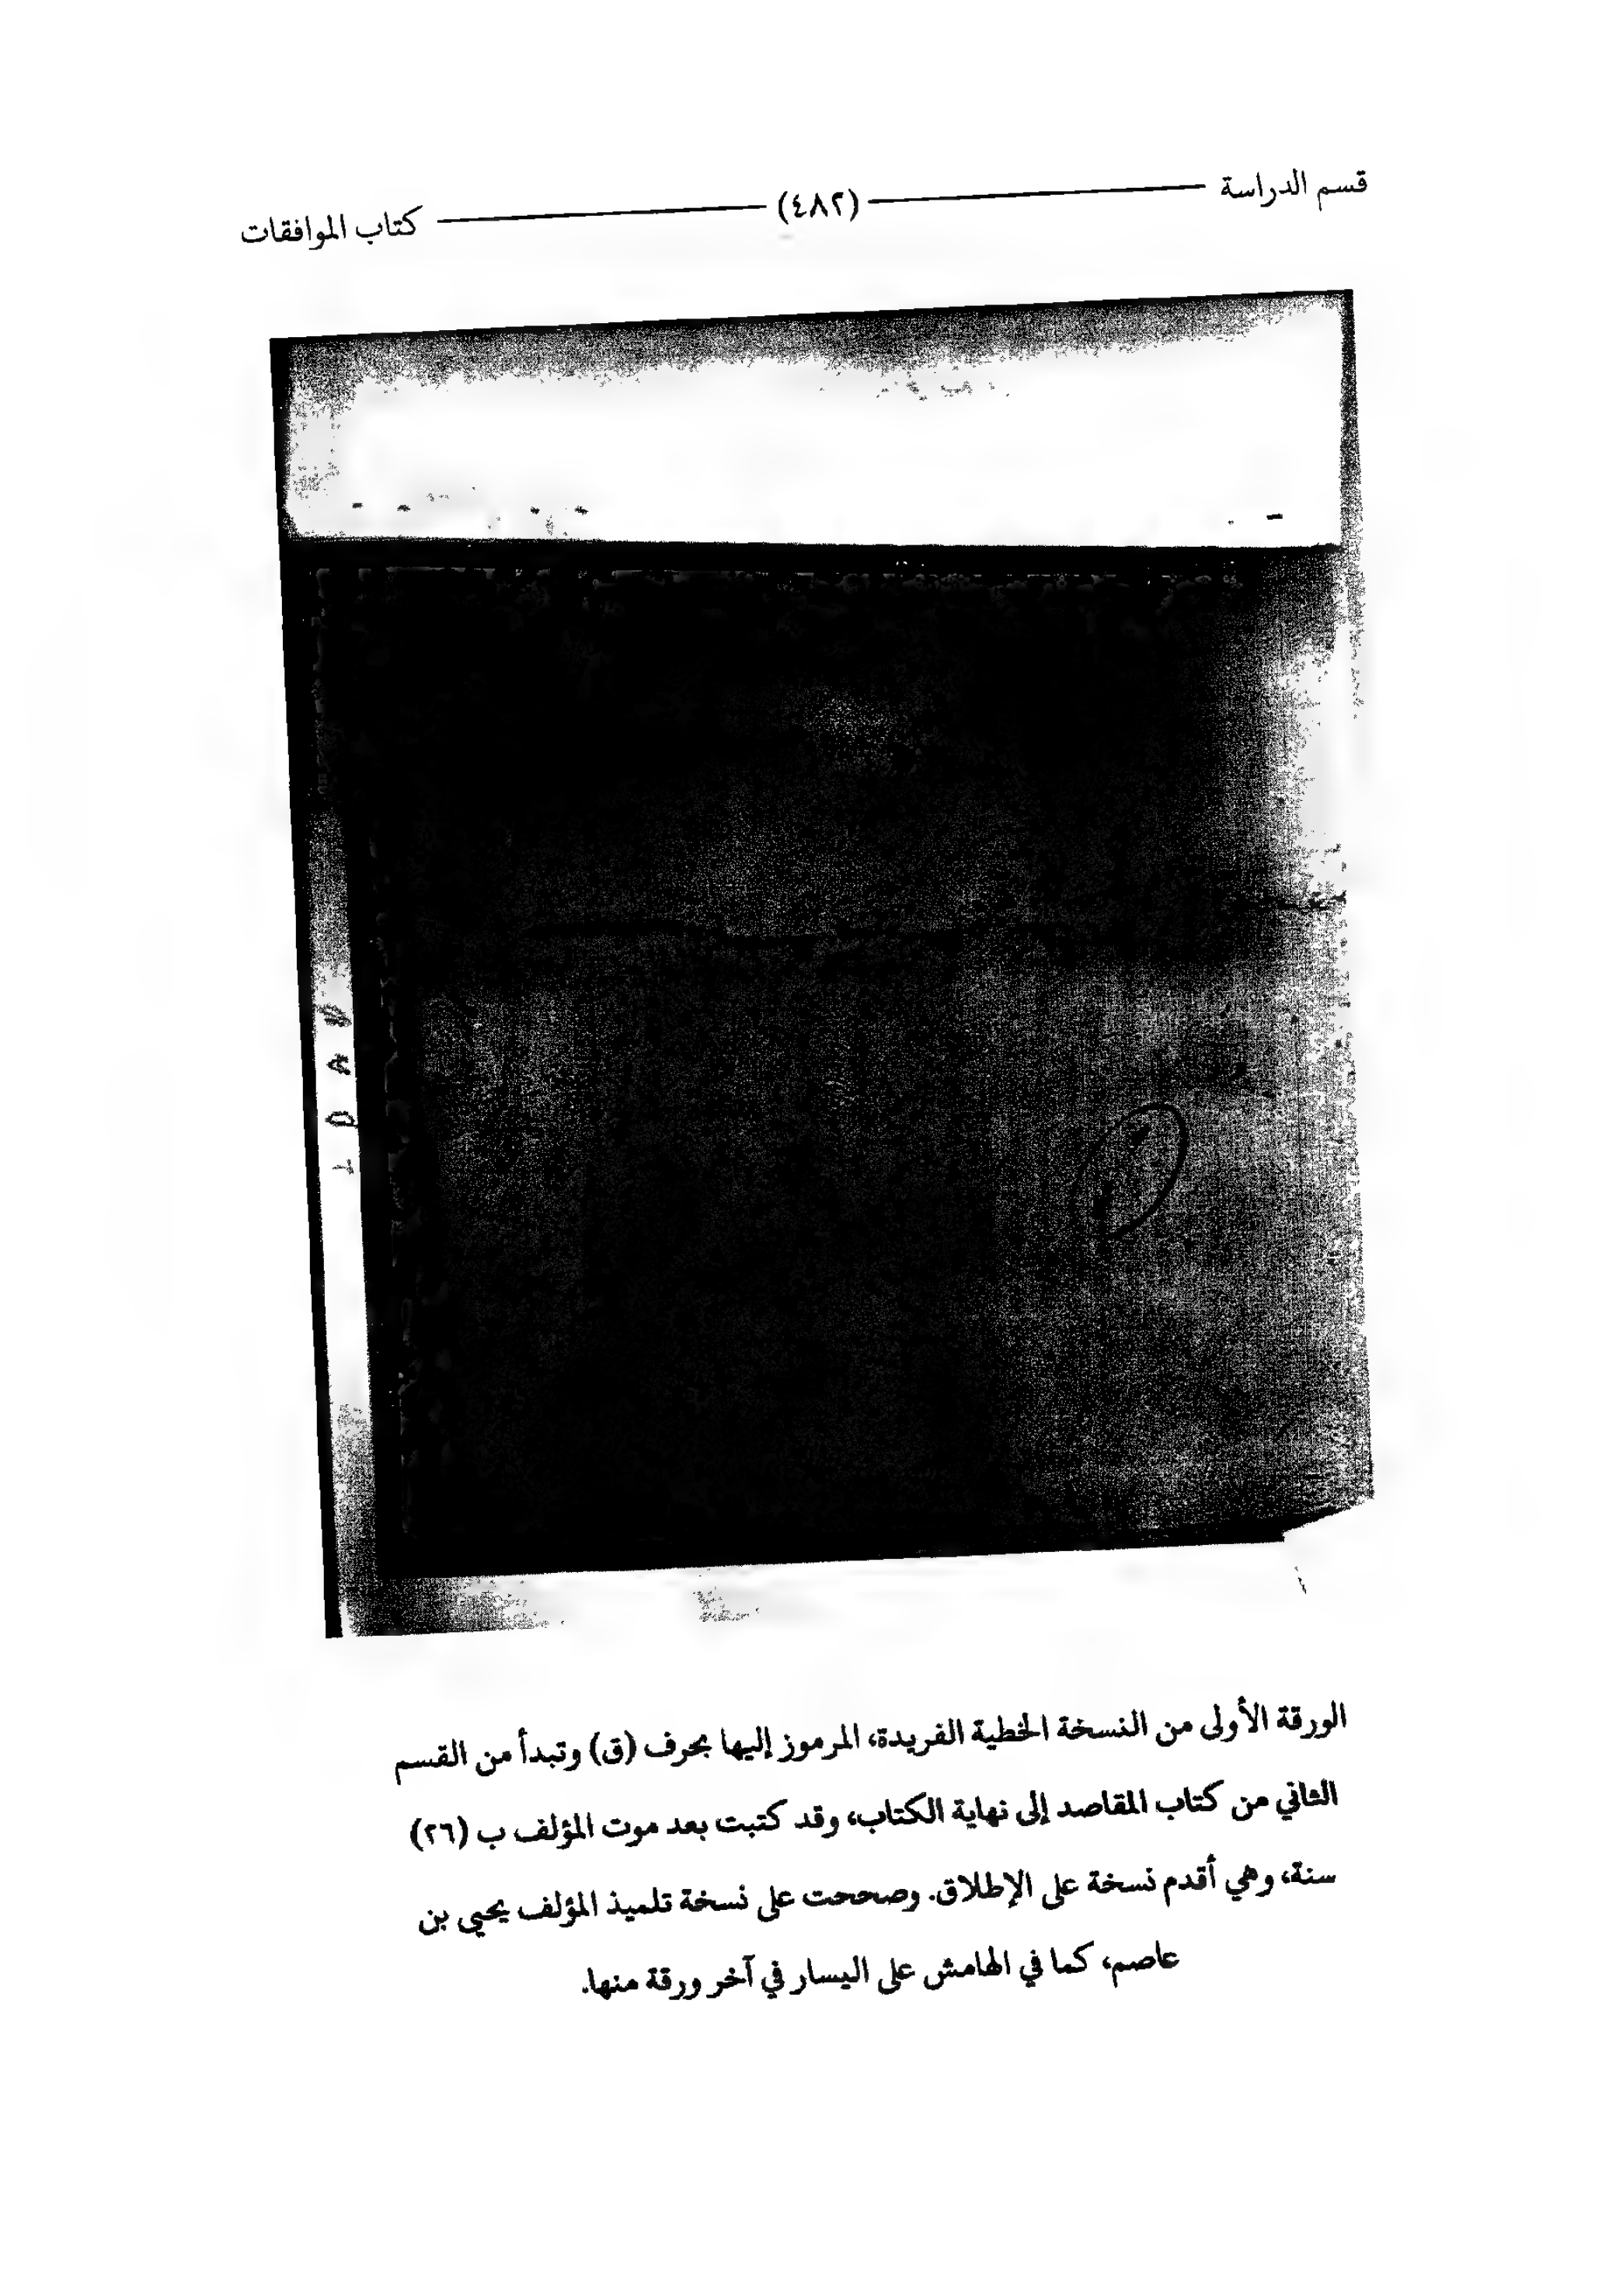 قسم الدراسة (٤٨٢) كتاب الموافقات
الورقة الأولى من النسخة الخطية الفريدة، المرموز إليها بحرف (ق) وتبدأ من القسم
الثاني من كتاب المقاصد إلى نهاية الكتاب، وقد كتبت بعد موت المؤلف ب (٢٦)
سنة، وهي أقدم نسخة على الإطلاق. وصححت على نسخة تلميذ المؤلف يحيى بن
عاصم، كما في الهامش على اليسار في آخر ورقة منها.